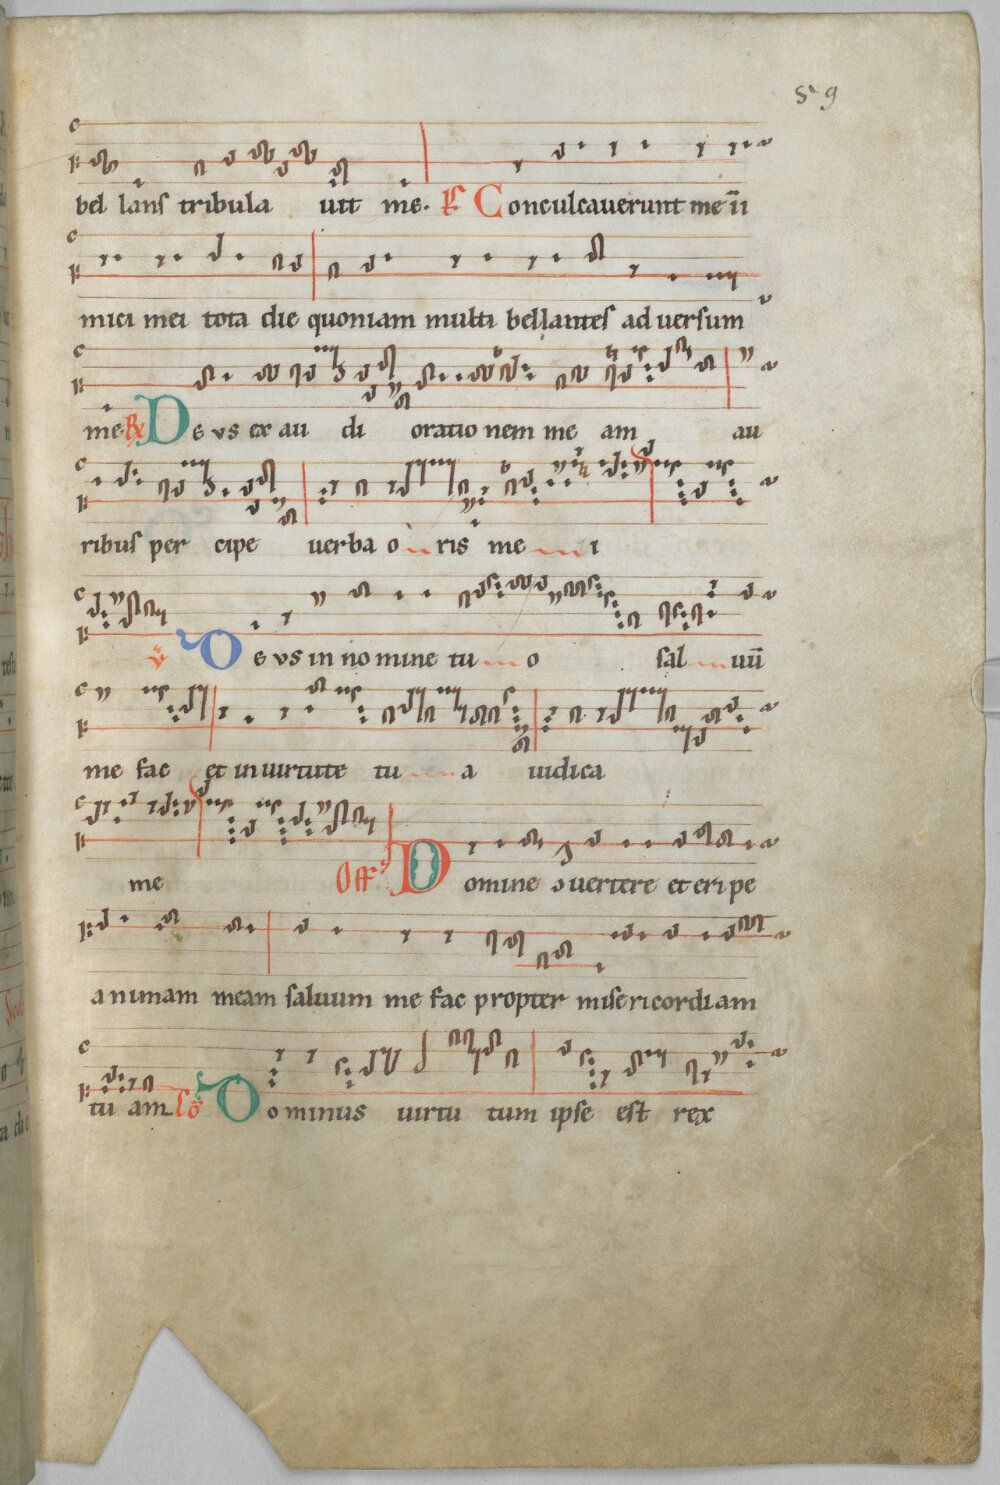 59
bel lans tribula uit me. Ps Conculcauerunt me ini
mici mei tota die quoniam multi bellantes aduersum
me. R Deus exau di orationem me am au
ribus per cipe uerba o ris me i
V Deus in nomine tu o sal uū
me fac et in uirtute tu a iudica
me Off Domine ɔuertere et eripe
animam meam saluum me fac propter misericordiam
tu am. Cō Dominus uirtu tum ipse est rex